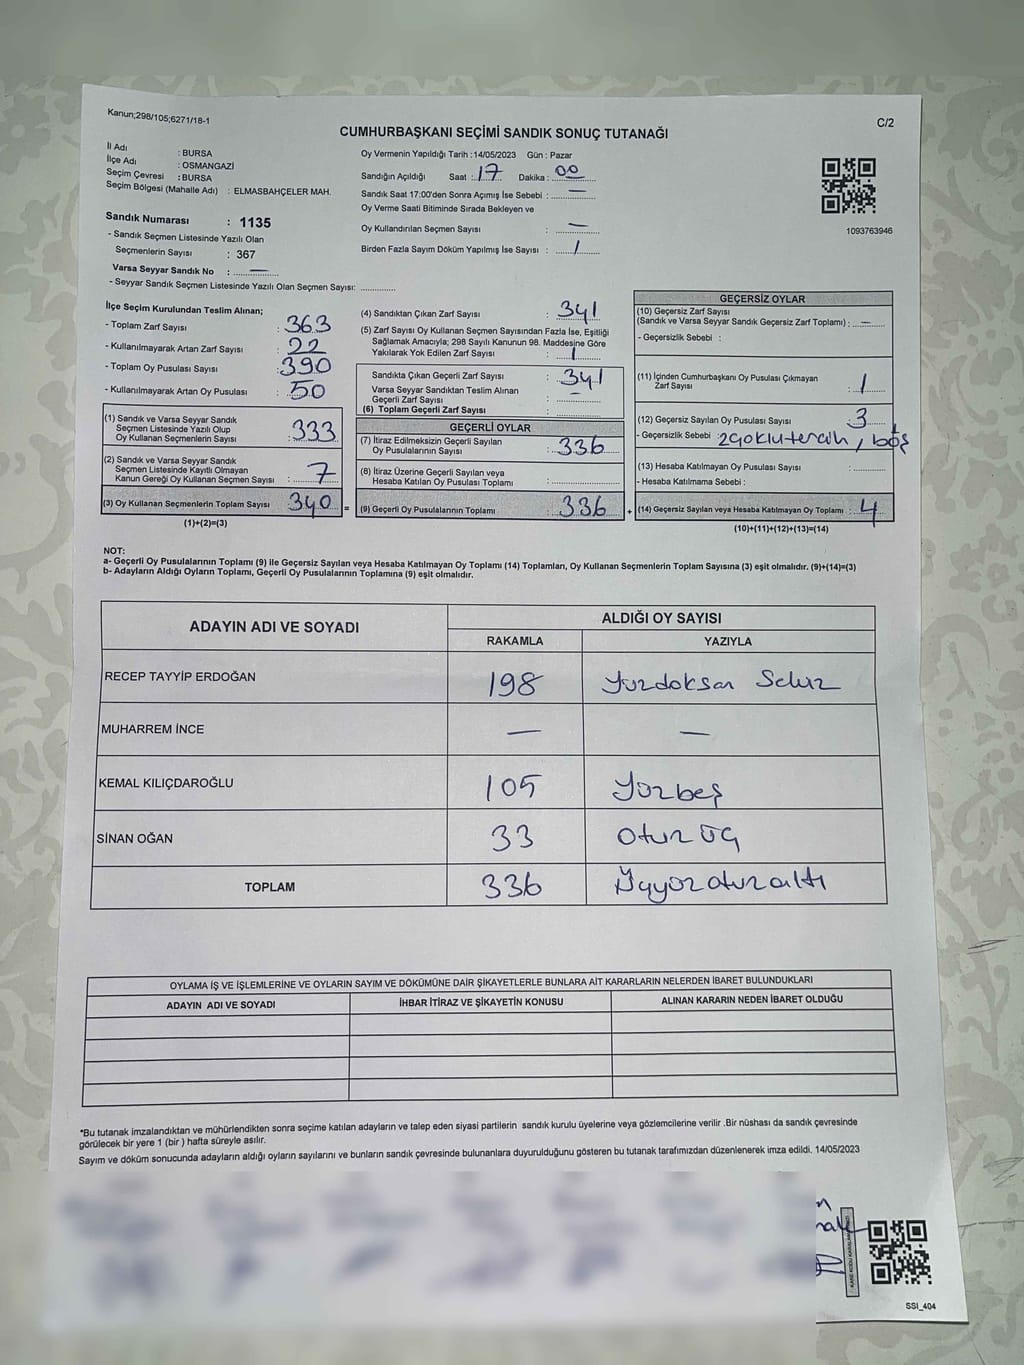 Kanun;298/105;6271/18-1
C/2
CUMHURBAŞKANI SEÇİMİ SANDIK SONUÇ TUTANAĞI
İl Adı : BURSA
İlçe Adı : OSMANGAZİ
Seçim Çevresi : BURSA
Seçim Bölgesi (Mahalle Adı) : ELMASBAHÇELER MAH.
Sandık Numarası : 1135
- Sandık Seçmen Listesinde Yazılı Olan
Seçmenlerin Sayısı : 367
Varsa Seyyar Sandık No : —
- Seyyar Sandık Seçmen Listesinde Yazılı Olan Seçmen Sayısı: ..............
Oy Vermenin Yapıldığı Tarih :14/05/2023 Gün : Pazar
Sandığın Açıldığı Saat : 17 Dakika : 00
Sandık Saat 17:00'den Sonra Açımış İse Sebebi : —
Oy Verme Saati Bitiminde Sırada Bekleyen ve
Oy Kullandırılan Seçmen Sayısı : —
Birden Fazla Sayım Döküm Yapılmış İse Sayısı : /
1093763946
İlçe Seçim Kurulundan Teslim Alınan;
- Toplam Zarf Sayısı : 363
- Kullanılmayarak Artan Zarf Sayısı : 22
- Toplam Oy Pusulası Sayısı : 390
- Kullanılmayarak Artan Oy Pusulası : 50
(1) Sandık ve Varsa Seyyar Sandık
Seçmen Listesinde Yazılı Olup
Oy Kullanan Seçmenlerin Sayısı : 333
(2) Sandık ve Varsa Seyyar Sandık
Seçmen Listesinde Kayıtlı Olmayan
Kanun Gereği Oy Kullanan Seçmen Sayısı : 7
(3) Oy Kullanan Seçmenlerin Toplam Sayısı 340 =
(1)+(2)=(3)
(4) Sandıktan Çıkan Zarf Sayısı : 341
(5) Zarf Sayısı Oy Kullanan Seçmen Sayısından Fazla İse, Eşitliği
Sağlamak Amacıyla; 298 Sayılı Kanunun 98. Maddesine Göre
Yakılarak Yok Edilen Zarf Sayısı : 1
Sandıkta Çıkan Geçerli Zarf Sayısı : 341
Varsa Seyyar Sandıktan Teslim Alınan
Geçerli Zarf Sayısı : —
(6) Toplam Geçerli Zarf Sayısı : ..............
GEÇERLİ OYLAR
(7) İtiraz Edilmeksizin Geçerli Sayılan
Oy Pusulalarının Sayısı : 336
(8) İtiraz Üzerine Geçerli Sayılan veya
Hesaba Katılan Oy Pusulası Toplamı : ..............
(9) Geçerli Oy Pusulalarının Toplamı : 336 +
GEÇERSİZ OYLAR
(10) Geçersiz Zarf Sayısı
(Sandık ve Varsa Seyyar Sandık Geçersiz Zarf Toplamı) : —
- Geçersizlik Sebebi :
(11) İçinden Cumhurbaşkanı Oy Pusulası Çıkmayan
Zarf Sayısı : 1
(12) Geçersiz Sayılan Oy Pusulası Sayısı : 3
- Geçersizlik Sebebi : 2çoklutercih, 1 boş
(13) Hesaba Katılmayan Oy Pusulası Sayısı : ..............
- Hesaba Katılmama Sebebi :
(14) Geçersiz Sayılan veya Hesaba Katılmayan Oy Toplamı : 4
(10)+(11)+(12)+(13)=(14)
NOT:
a- Geçerli Oy Pusulalarının Toplamı (9) ile Geçersiz Sayılan veya Hesaba Katılmayan Oy Toplamı (14) Toplamları, Oy Kullanan Seçmenlerin Toplam Sayısına (3) eşit olmalıdır. (9)+(14)=(3)
b- Adayların Aldığı Oyların Toplamı, Geçerli Oy Pusulalarının Toplamına (9) eşit olmalıdır.
ADAYIN ADI VE SOYADI
ALDIĞI OY SAYISI
RAKAMLA YAZIYLA
RECEP TAYYİP ERDOĞAN 198 Yüzdoksan Sekiz
MUHARREM İNCE — —
KEMAL KILIÇDAROĞLU 105 Yüzbeş
SİNAN OĞAN 33 Otuz üç
TOPLAM 336 Üçyüzotuzaltı
OYLAMA İŞ VE İŞLEMLERİNE VE OYLARIN SAYIM VE DÖKÜMÜNE DAİR ŞİKAYETLERLE BUNLARA AİT KARARLARIN NELERDEN İBARET BULUNDUKLARI
ADAYIN ADI VE SOYADI İHBAR İTİRAZ VE ŞİKAYETİN KONUSU ALINAN KARARIN NEDEN İBARET OLDUĞU
*Bu tutanak imzalandıktan ve mühürlendikten sonra seçime katılan adayların ve talep eden siyasi partilerin sandık kurulu üyelerine veya gözlemcilerine verilir .Bir nüshası da sandık çevresinde
görülecek bir yere 1 (bir ) hafta süreyle asılır.
Sayım ve döküm sonucunda adayların aldığı oyların sayılarını ve bunların sandık çevresinde bulunanlara duyurulduğunu gösteren bu tutanak tarafımızdan düzenlenerek imza edildi. 14/05/2023
SSI_404